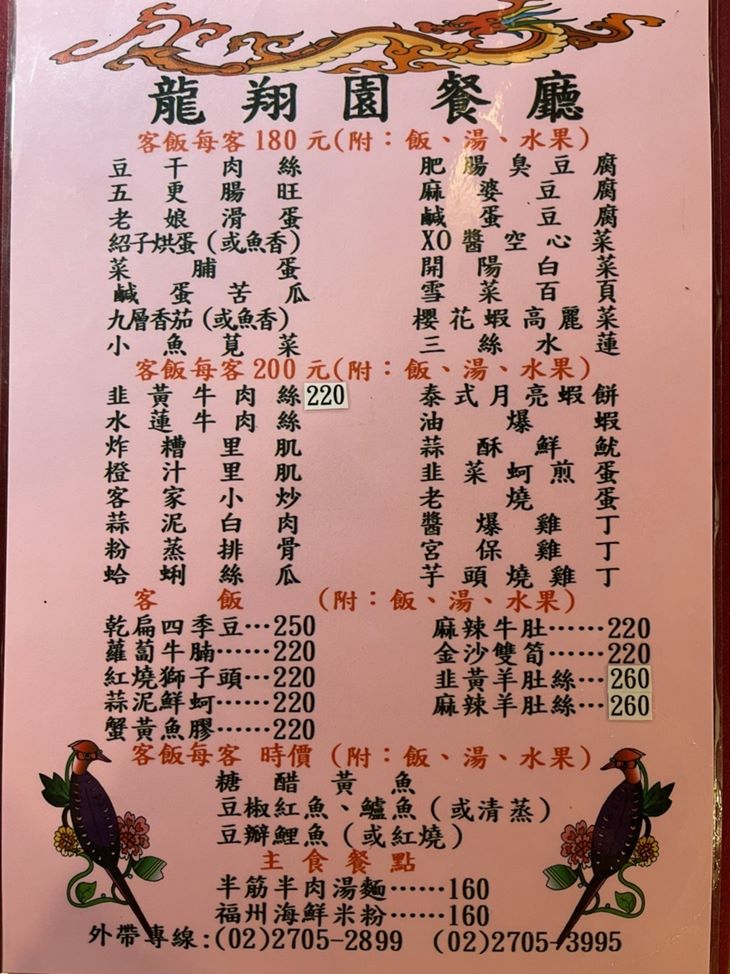 龍翔園餐廳
客飯每客180元(附：飯、湯、水果)
豆干肉絲 肥腸臭豆腐
五更腸旺 麻婆豆腐
老娘滑蛋 鹹蛋豆腐
紹子烘蛋(或魚香) XO醬空心菜
菜脯蛋 開陽白菜
鹹蛋苦瓜 雪菜百頁
九層香茄(或魚香) 櫻花蝦高麗菜
小魚莧菜 三絲水蓮
客飯每客200元(附：飯、湯、水果)
韭黃牛肉絲220 泰式月亮蝦餅
水蓮牛肉絲 油爆蝦
炸糟里肌 蒜酥鮮魷
橙汁里肌 韭菜蚵煎蛋
客家小炒 老燒蛋
蒜泥白肉 醬爆雞丁
粉蒸排骨 宮保雞丁
蛤蜊絲瓜 芋頭燒雞丁
客飯 (附：飯、湯、水果)
乾扁四季豆…250 麻辣牛肚……220
蘿蔔牛腩……220 金沙雙筍……220
紅燒獅子頭…220 韭黃羊肚絲…260
蒜泥鮮蚵……220 麻辣羊肚絲…260
蟹黃魚膠……220
客飯每客 時價(附：飯、湯、水果)
糖醋黃魚
豆椒紅魚、鱸魚(或清蒸)
豆瓣鯉魚(或紅燒)
主食餐點
半筋半肉湯麵……160
福州海鮮米粉……160
外帶專線:(02)2705-2899 (02)2705-3995